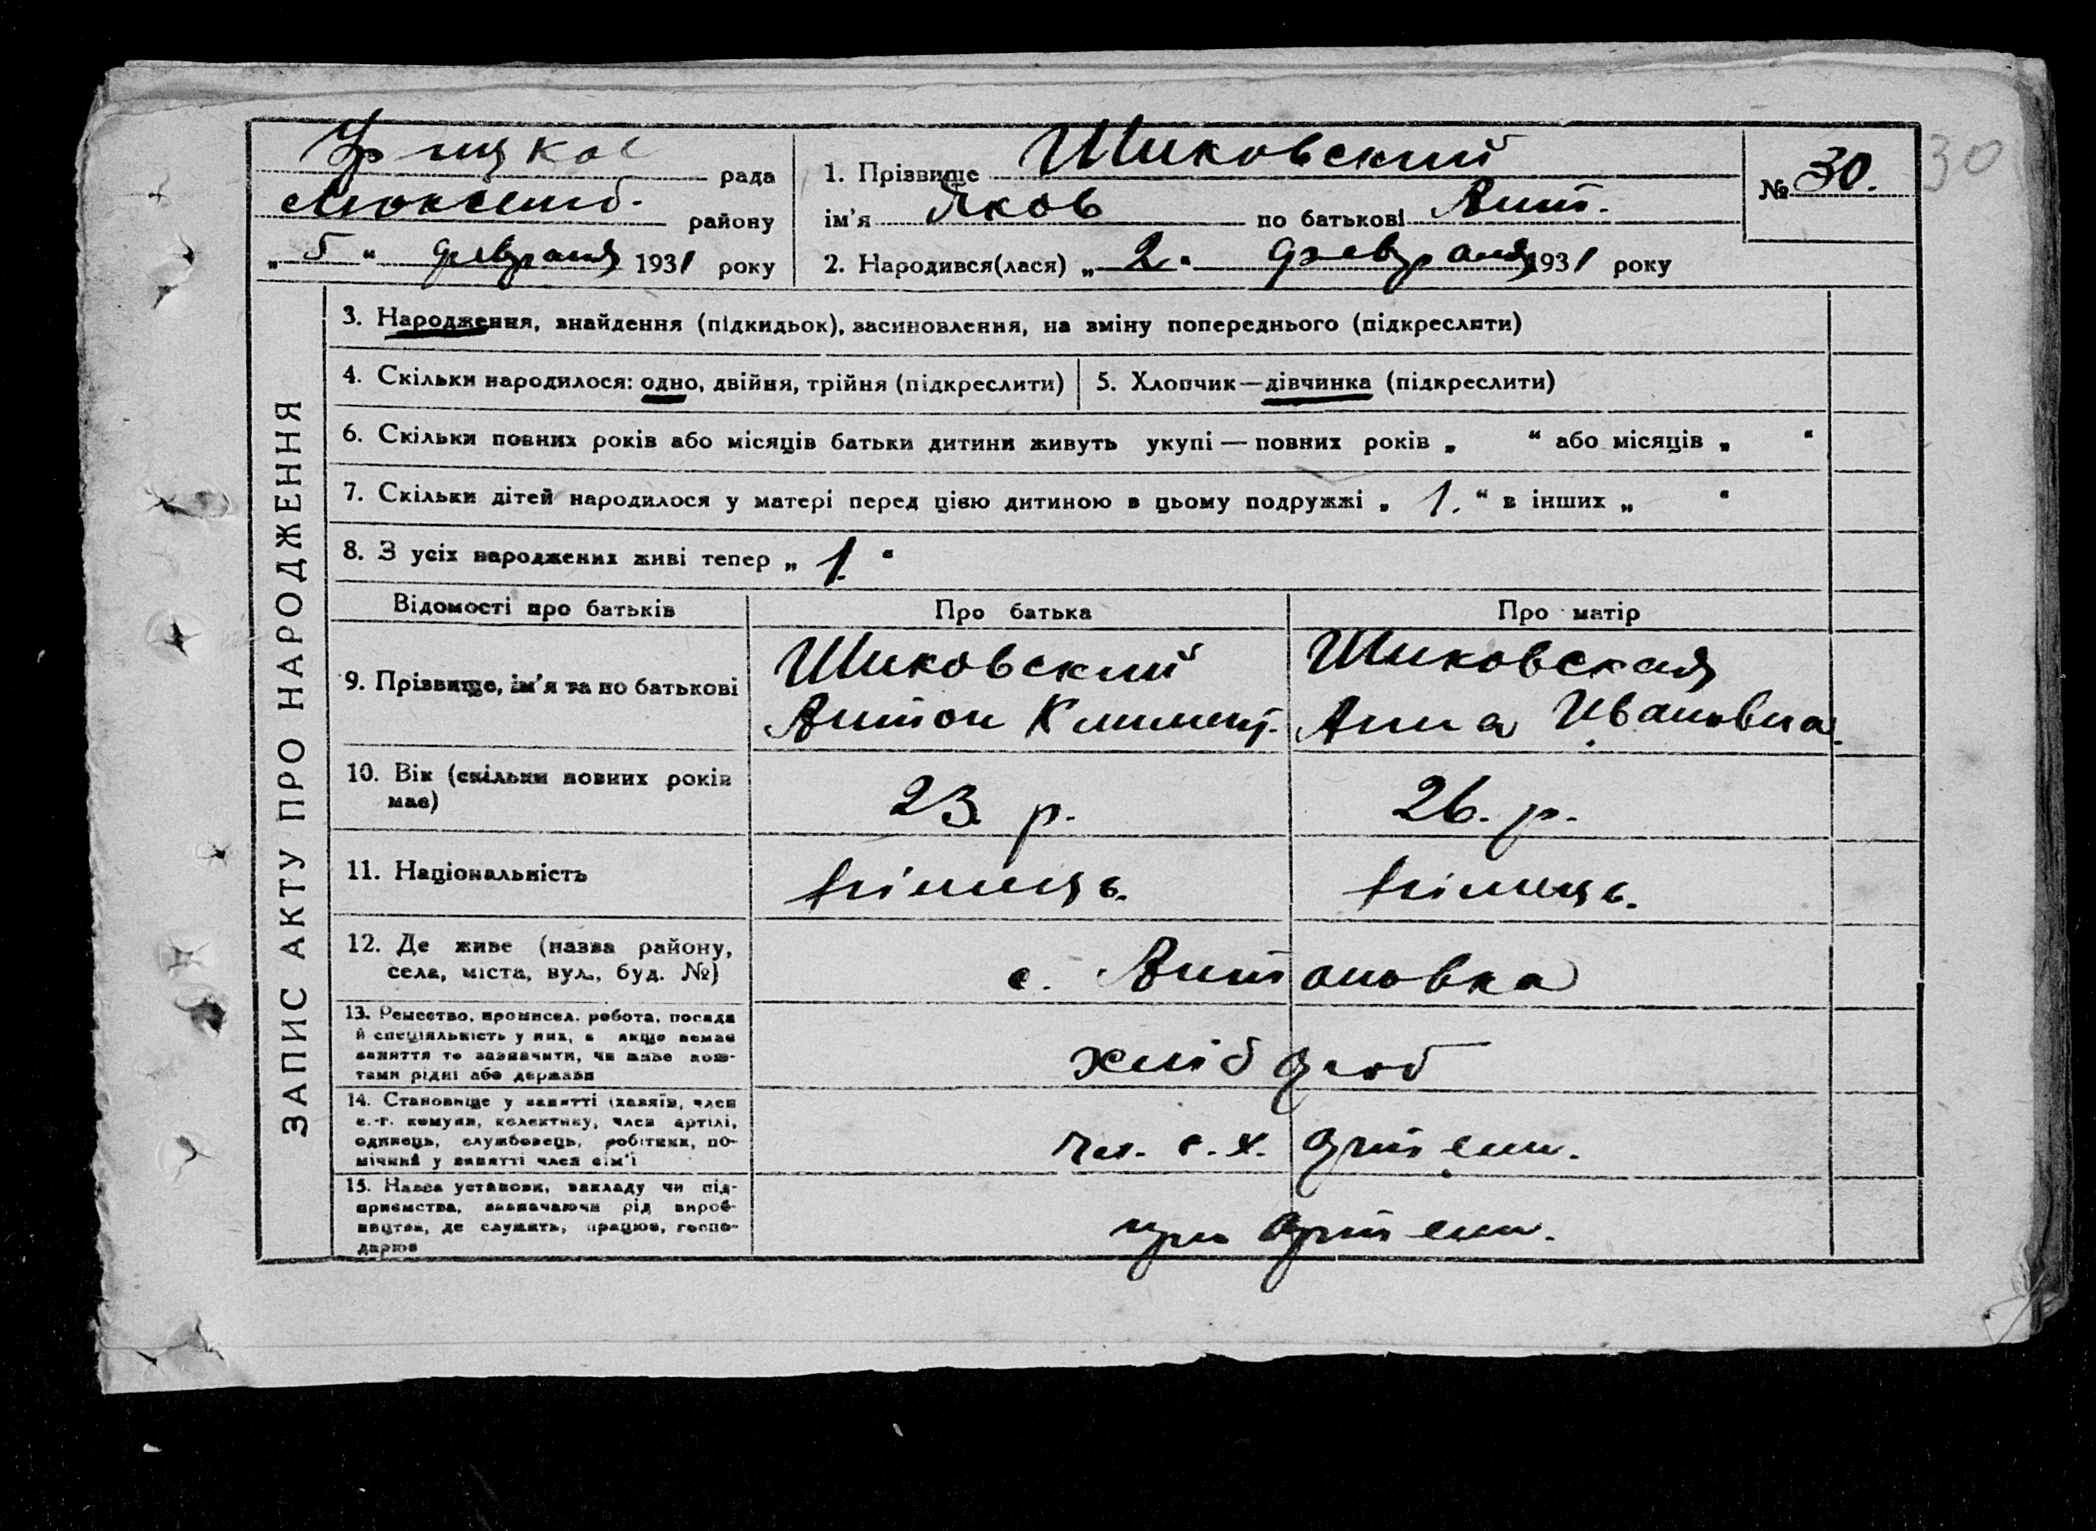 Фрицкое рада
Люксемб. району
„ 5 “ февраля 1931 року
1. Прізвище Шиковский
ім'я Яков по батькові Ант.
2. Народився(лася) „ 2 “ февраля 1931 року
№ 30.
30
ЗАПИС АКТУ ПРО НАРОДЖЕННЯ
3. Народження, знайдення (підкидьок), засиновлення, на зміну попереднього (підкреслити)
4. Скільки народилося: одно, двійня, трійня (підкреслити)
5. Хлопчик—дівчинка (підкреслити)
6. Скільки повних років або місяців батьки дитини живуть укупі — повних років „ “ або місяців „ “
7. Скільки дітей народилося у матері перед цією дитиною в цьому подружжі „ 1. “ в інших „ “
8. З усіх народжених живі тепер „ 1. “
Відомості про батьків
Про батька
Про матір
9. Прізвище, ім'я та по батькові
Шиковский
Антон Климент.
Шиковская
Анна Ивановна.
10. Вік (скільки повних років
має)
23 р.
26. р.
11. Національність
німець.
німець.
12. Де живе (назва району,
села, міста, вул., буд. №)
с. Антоновка
13. Ремество, промисел, робота, посада
й спеціяльність у них, а якщо немає
заняття то зазначити, чи живе кош-
тами рідні або держави
хлібороб
14. Становище у занятті (хазяїн, член
с.-г. комуни, колективу, член артілі,
одинець, службовець, робітник, по-
мічний у занятті член сім'ї
чл. с. х. артели.
15. Назва установи, закладу чи під-
приємства, зазначаючи рід вироб-
ництва, де служить, працює, госпо-
дарює
при артели.